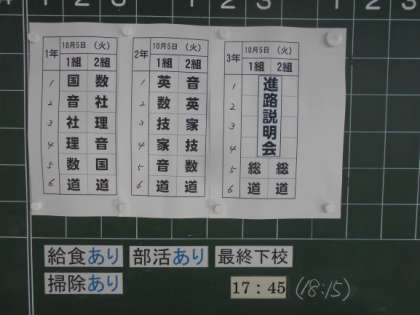 1 2 3 1 2 3 1 2 3
1年 10月5日 (火)
1組 2組
1 国 数
2 音 社
3 社 理
4 理 音
5 数 国
6 道 道
2年 10月5日 (火)
1組 2組
1 英 音
2 数 英
3 技 家
4 家 技
5 音 数
6 道 道
3年 10月5日 (火)
1組 2組
1
2
3
4
進路説明会
5 総 総
6 道 道
給食あり 部活あり 最終下校
掃除あり 17:45 (18:15)